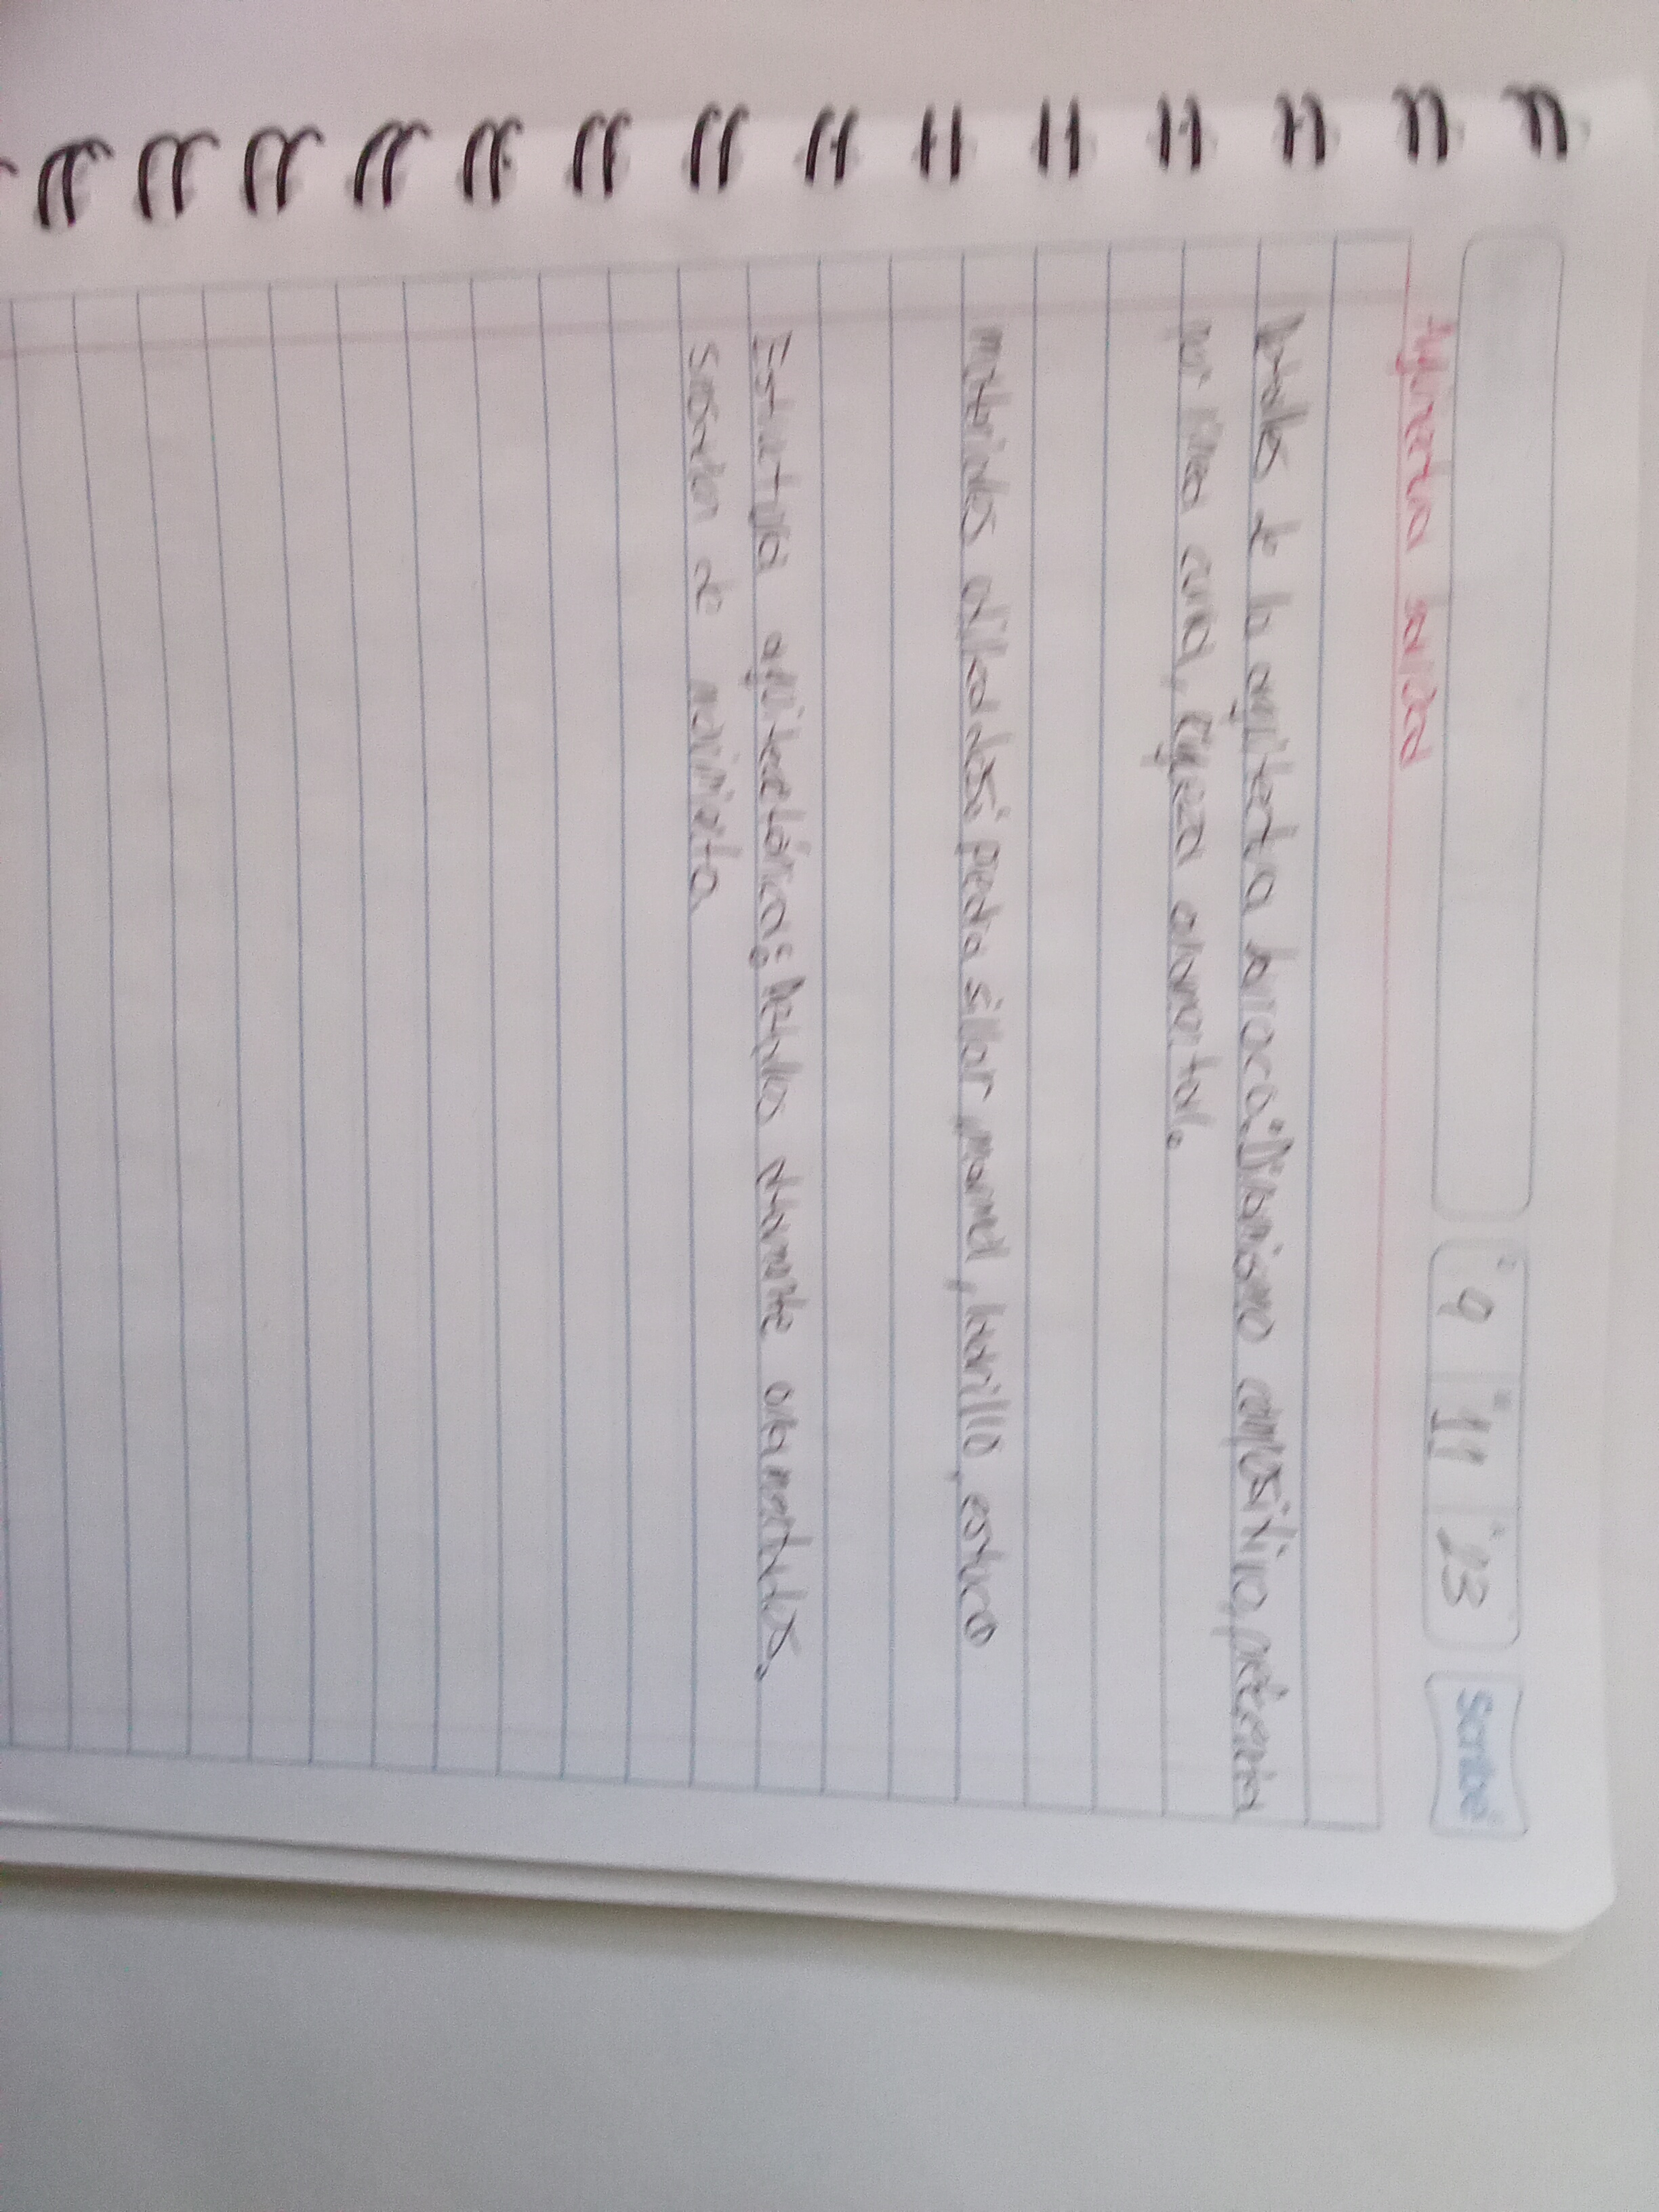 9 11 23
Scribe
Arquitectura barroca
Detalles de la arquitectura barroca: Dinamismo compositivo, preferencia
por línea curva, riqueza ornamental.
materiales utilizados: piedra sillar, marmol, ladrillo, estuco
Estructura arquitectónica: Detalles altamente ornamentados,
sensación de movimiento.